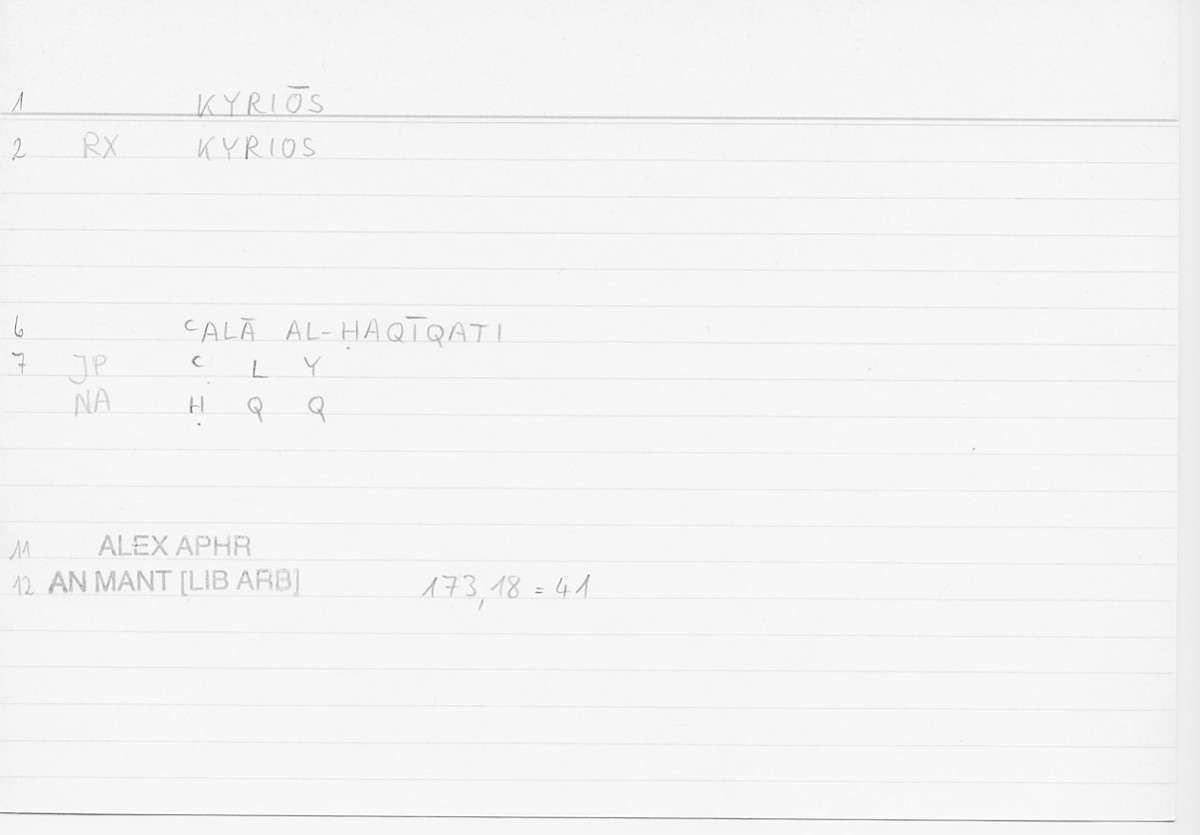 1 KYRIŌS
2 RX KYRIOS
6 ᶜALĀ AL-ḤAQĪQATI
7 JP ᶜ L Y
NA Ḥ Q Q
11 ALEX APHR
12 AN MANT [LIB ARB] 173,18 = 41